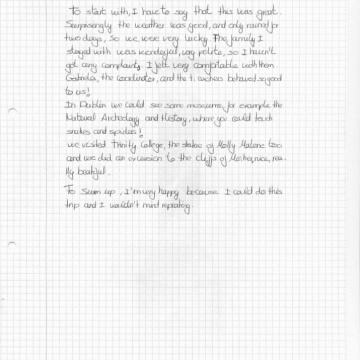 To start with, I have to say that this was great.
Surprisingly the weather was good, and only rained for
two days, so we were very lucky. The family I
stayed with was wonderful, very polite, so I haven't
got any complaints, I felt very comfortable with them.
Gabriela, the coordinator, and the teachers behaved so good
to us!
In Dublin we could see some museums, for example the
Natural Archeology and History, where you could touch
snakes and spiders!
we visited Trinity College, the statue of Molly Malone too
and we did an excursion to the cliffs of Moher, nice, rea-
lly beatiful.
To sum up, I'm very happy because I could do this
trip and I wouldn't mind repeating.